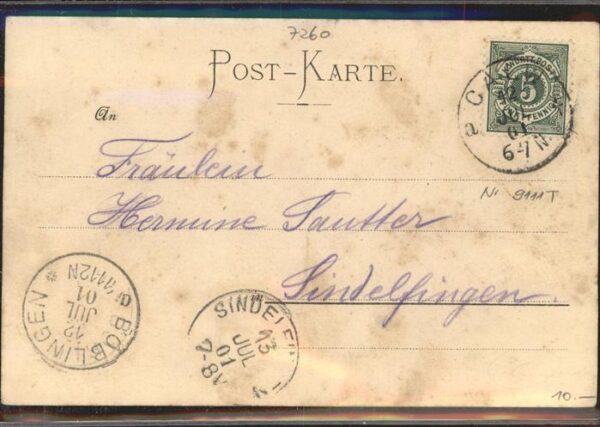 7260
POST-KARTE.
An
Fräulein
Hermine Sautter
Sindelfingen.
5
CALW
12
JUL
01
6-7 N.
Nr 9111 T
BÖBLINGEN
a
12
JUL
01
11-12N
SINDELF
13
JUL
01
7-8
10.—